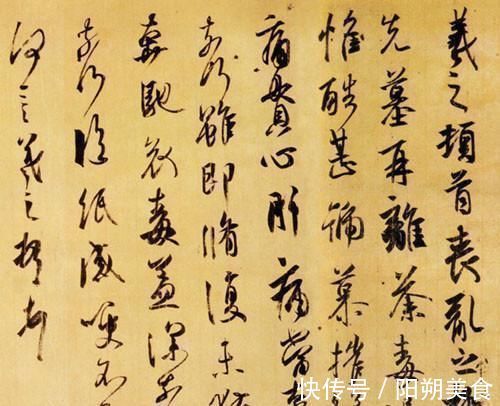 羲之頓首喪亂之
先墓再離荼毒
惟酷甚號慕摧
痛貫心肝痛當
奈何雖即脩復未
奔馳哀毒益深奈
奈何臨紙感哽不
何言羲之頓首
快传号 / 阳朔美食